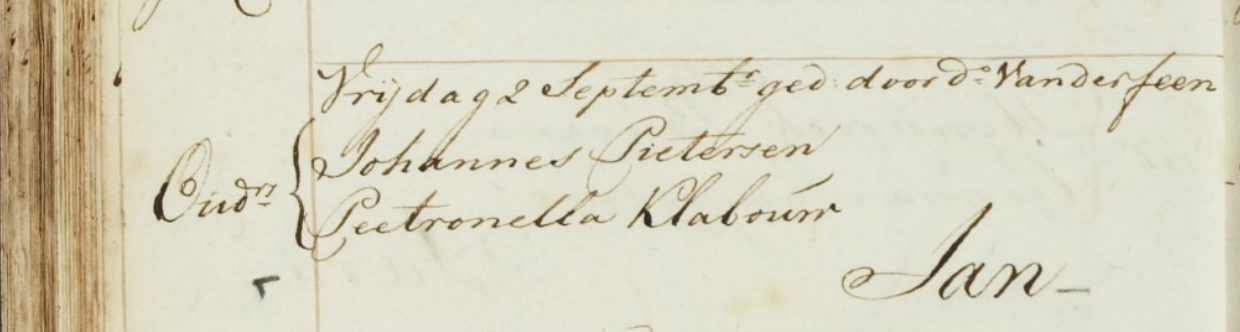 Vrijdag 2 Septembr ged: door do: Van der feen
Oudrs Johannes Pietersen
Peetronella Klabouw
Jan